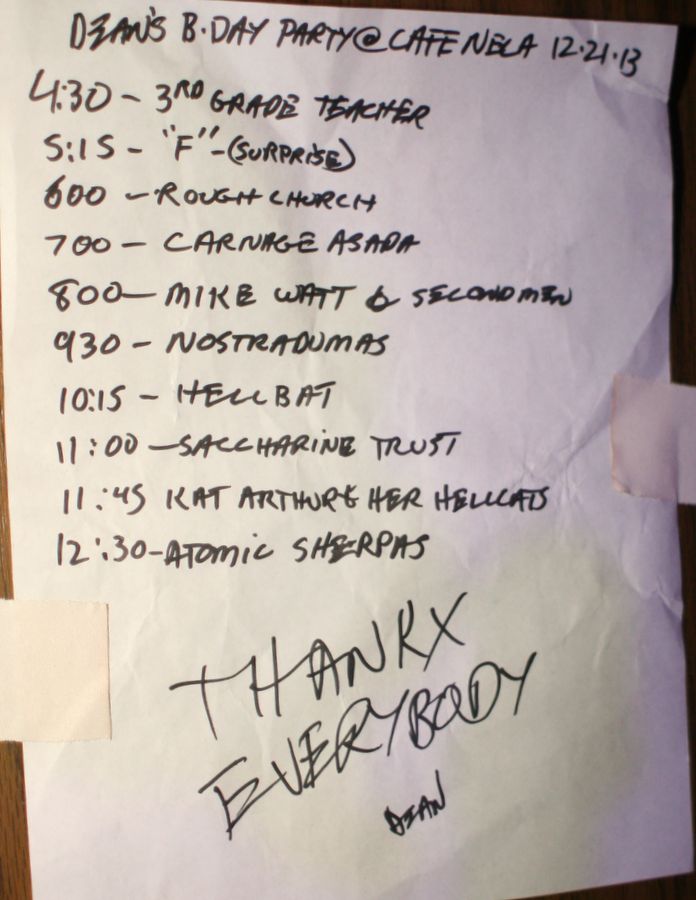 DEAN'S B.DAY PARTY @ CAFE NELA 12.21.13
4:30 - 3RD GRADE TEACHER
5:15 - "F" - (SURPRISE)
600 - ROUGH CHURCH
700 - CARNAGE ASADA
800 - MIKE WATT & SECONDMEN
930 - NOSTRADUMAS
10:15 - HELLBAT
11:00 - SACCHARINE TRUST
11:45 KAT ARTHUR & HER HELLCATS
12:30 - ATOMIC SHERPAS
THANKX
EVERYBODY
DEAN